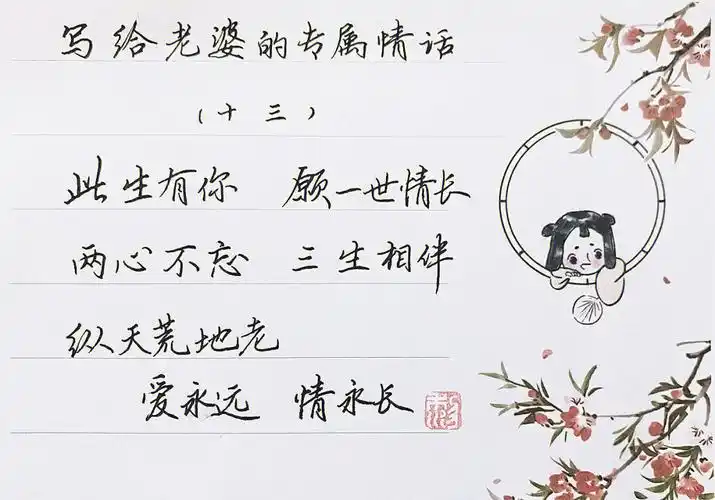 写给老婆的专属情话
（十三）
此生有你 愿一世情长
两心不忘 三生相伴
纵天荒地老
爱永远 情永长